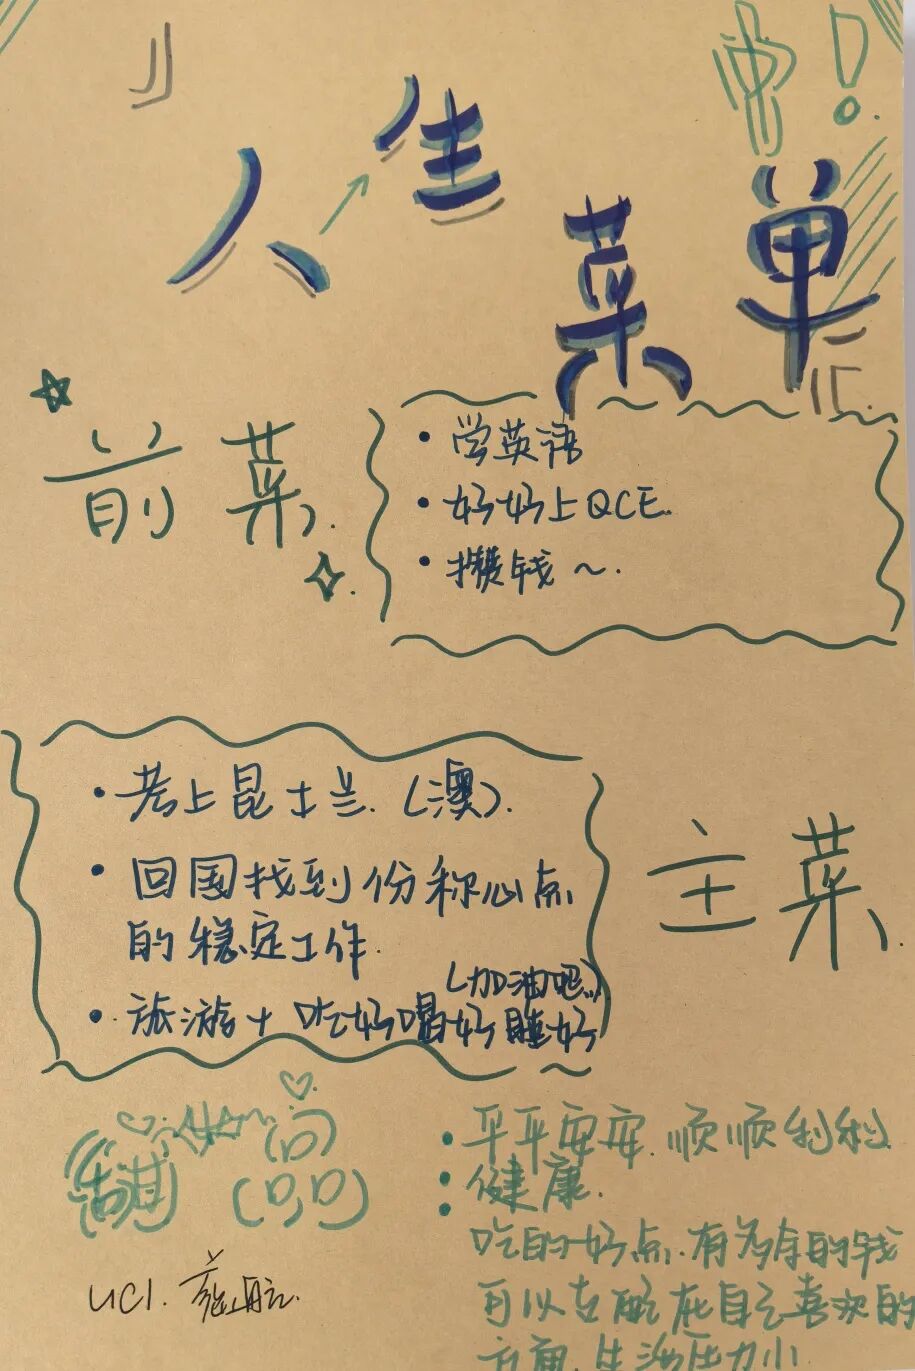 人生菜单
前菜.
• 学英语
• 好好上QCE.
• 攒钱～.
• 考上昆士兰.（澳）.
• 回国找到份称心点
的稳定工作.
（加油吧..）
• 旅游+吃好喝好睡好
主菜.
甜品
• 平平安安.顺顺利利.
• 健康.
• 吃的好点.有多余的钱
可以去放在自己喜欢的
方面.生活压力小
UC1.